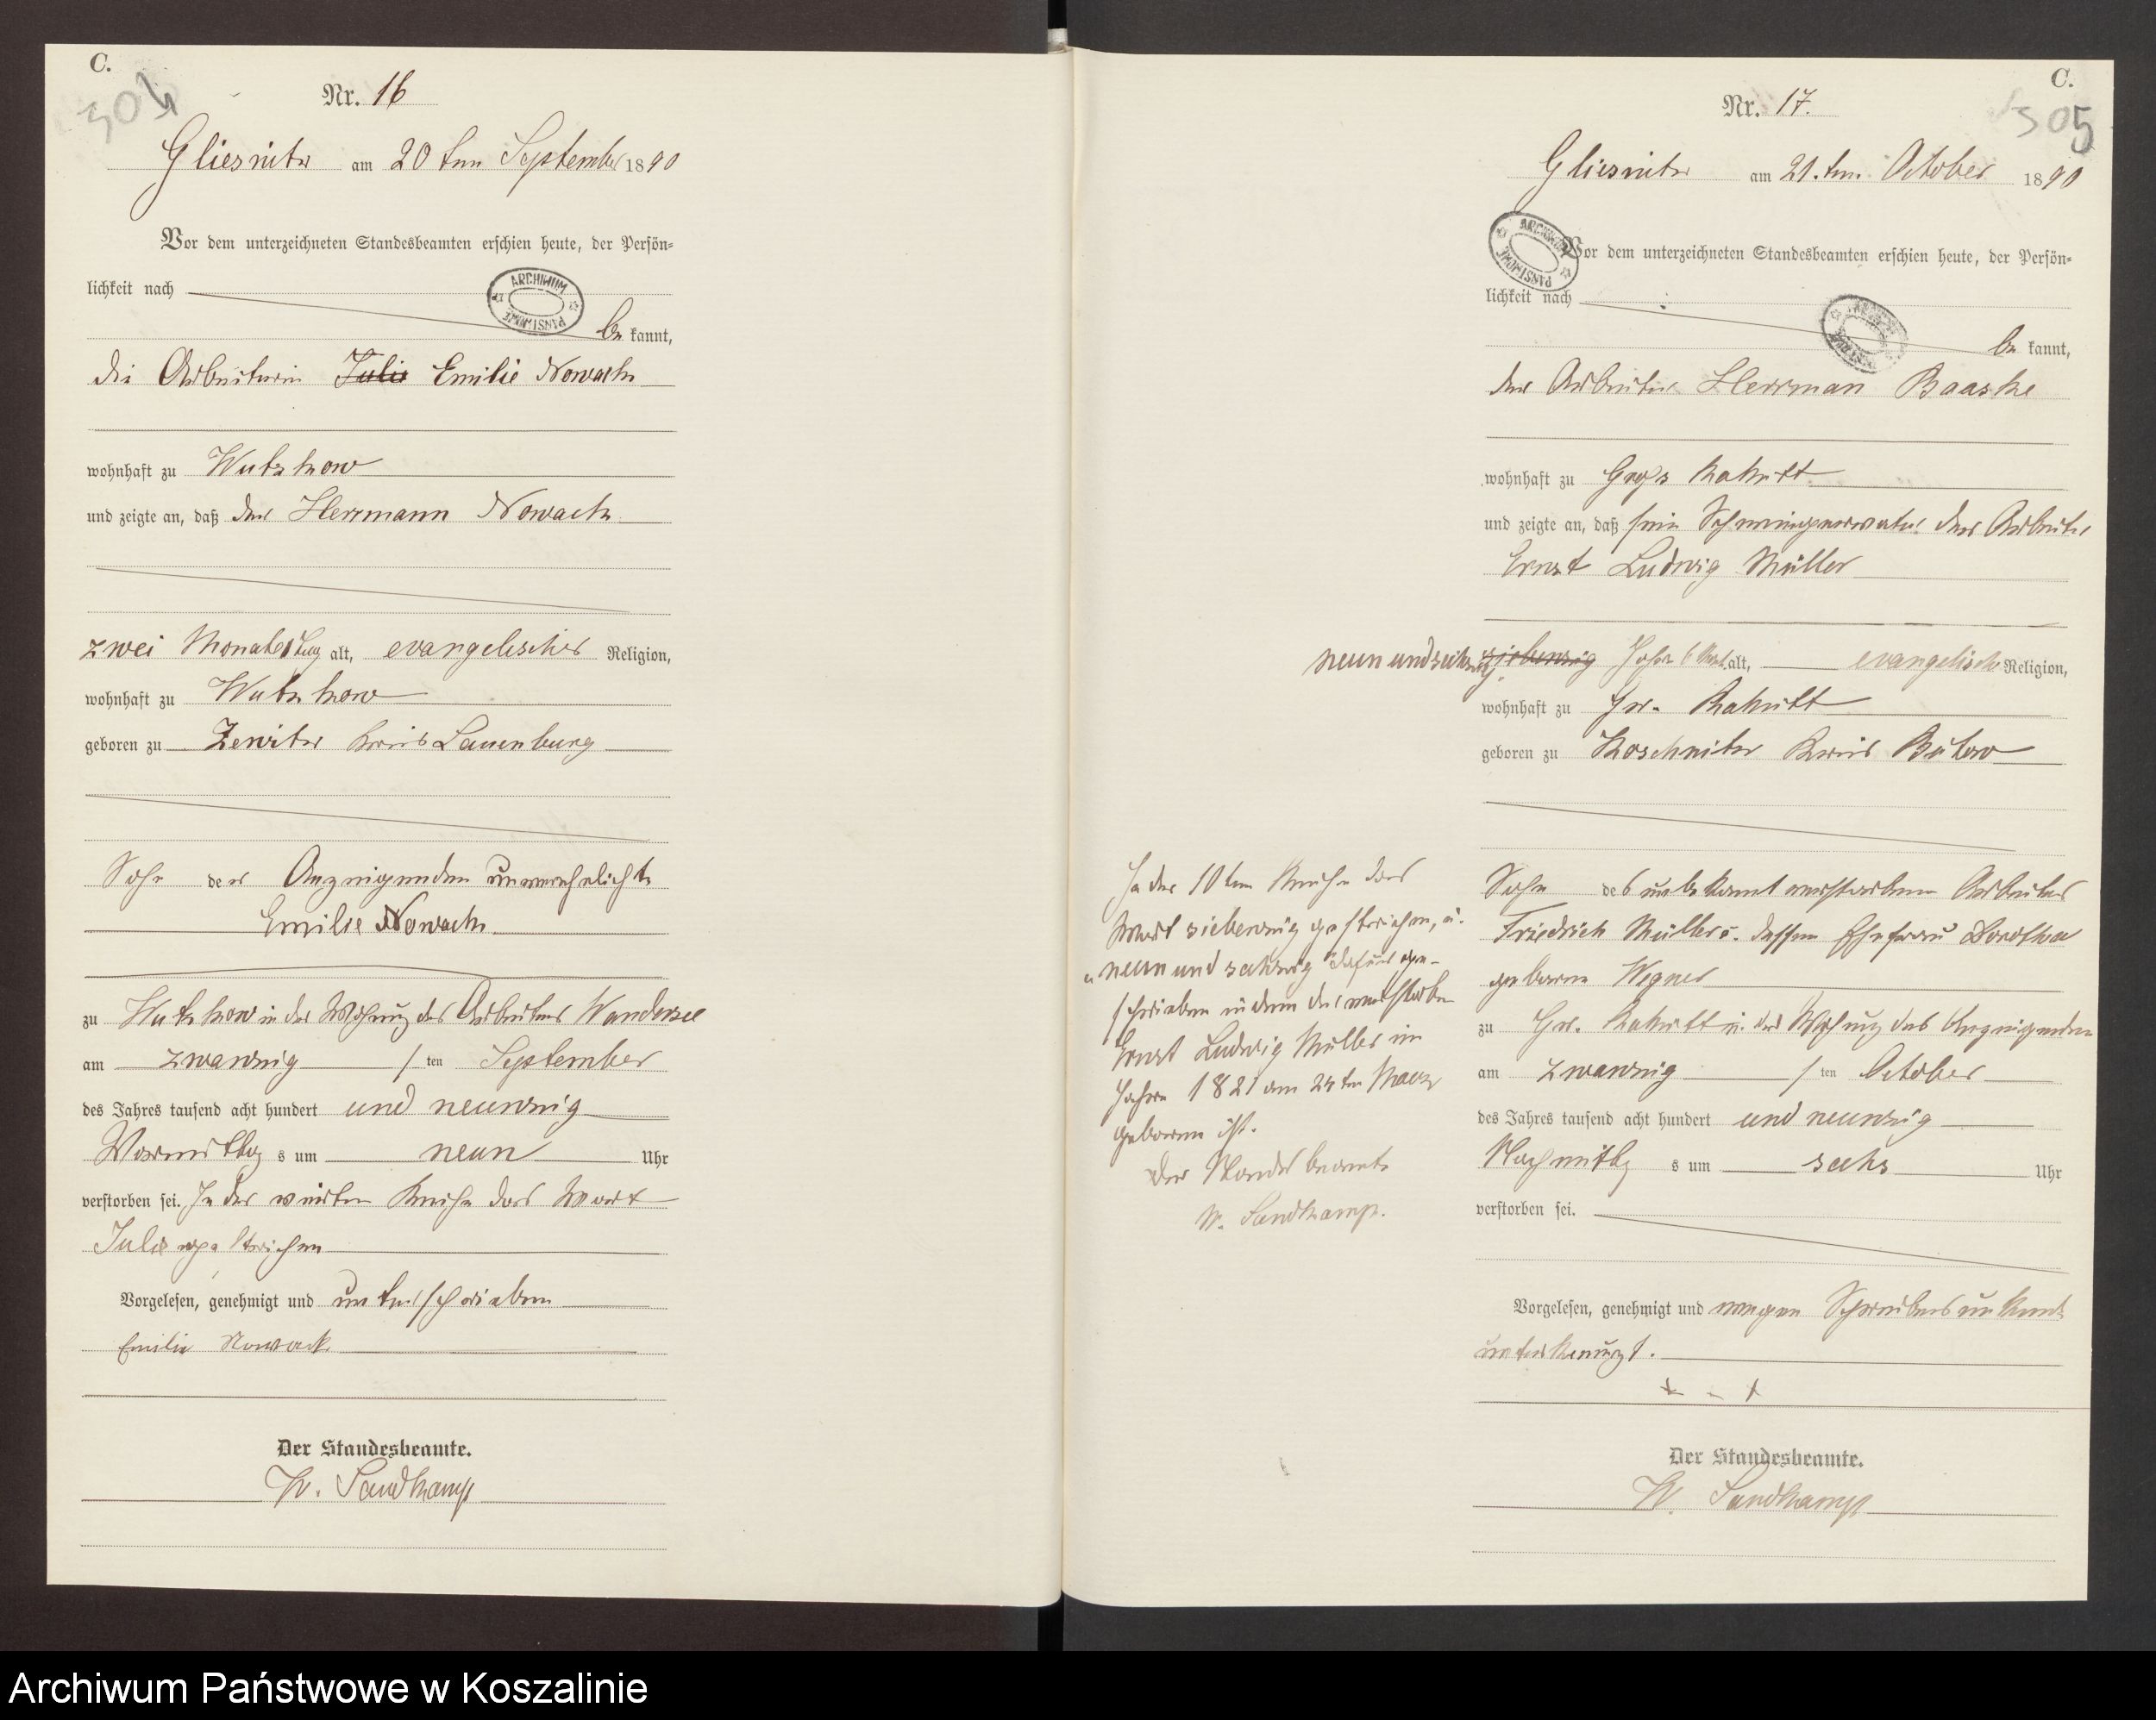 C.
304
Nr. 16
Gliesnitz am 20ten September 1890
Vor dem unterzeichneten Standesbeamten erschien heute, der Persön-
lichkeit nach
ARCHIWUM PAŃSTWOWE
be kannt,
die Arbeiterin Julie Emilie Nowack
wohnhaft zu Wutzkow
und zeigte an, daß der Herrmann Nowack
zwei Monate 1 Tag alt, evangelischer Religion,
wohnhaft zu Wutzkow
geboren zu Zewitz Kreis Lauenburg
Sohn der Anzeigenden unverehelichte
Emilie Nowack
zu Wutzkow in der Wohnung des Arbeiters Wandersee
am zwanzig ten September
des Jahres tausend acht hundert und neunzig
Vormittag s um neun Uhr
verstorben sei. In der vierten Reihe das Wort
Julie gestrichen
Vorgelesen, genehmigt und unterschrieben
Emilie Nowack
Der Standesbeamte.
W. Sandkamp
C.
305
Nr. 17.
Gliesnitz am 21.ten October 1890
ARCHIWUM PAŃSTWOWE
Vor dem unterzeichneten Standesbeamten erschien heute, der Persön-
lichkeit nach
be kannt,
der Arbeiter Herrman Baaske
wohnhaft zu Gross Rakitt
und zeigte an, daß sein Schwiegervater der Arbeiter
Ernst Ludwig Müller
neunundsechszig siebenzig Jahre 6 Mont. alt, evangelische Religion,
wohnhaft zu Gr. Rakitt
geboren zu Moschnitz Kreis Bütow
Sohn des unbekannt verstorbenen Arbeiter
Friedrich Müller u. dessen Ehefrau Dorothea
geborene Wegner
zu Gr. Rakitt in der Wohnung des Anzeigenden
am zwanzig ten October
des Jahres tausend acht hundert und neunzig
Nachmittag s um sechs Uhr
verstorben sei.
In der 10ten Reihe das
Wort siebenzig gestrichen, u.
neun und sechzig dafür ge-
schrieben indem der verstorbene
Ernst Ludwig Müller im
Jahre 1821 am 24ten Maerz
geboren ist.
Der Standesbeamte
W. Sandkamp.
Vorgelesen, genehmigt und wegen Schreibensunkunde
unterkreuzt.
+ - +
Der Standesbeamte.
W. Sandkamp
Archiwum Państwowe w Koszalinie